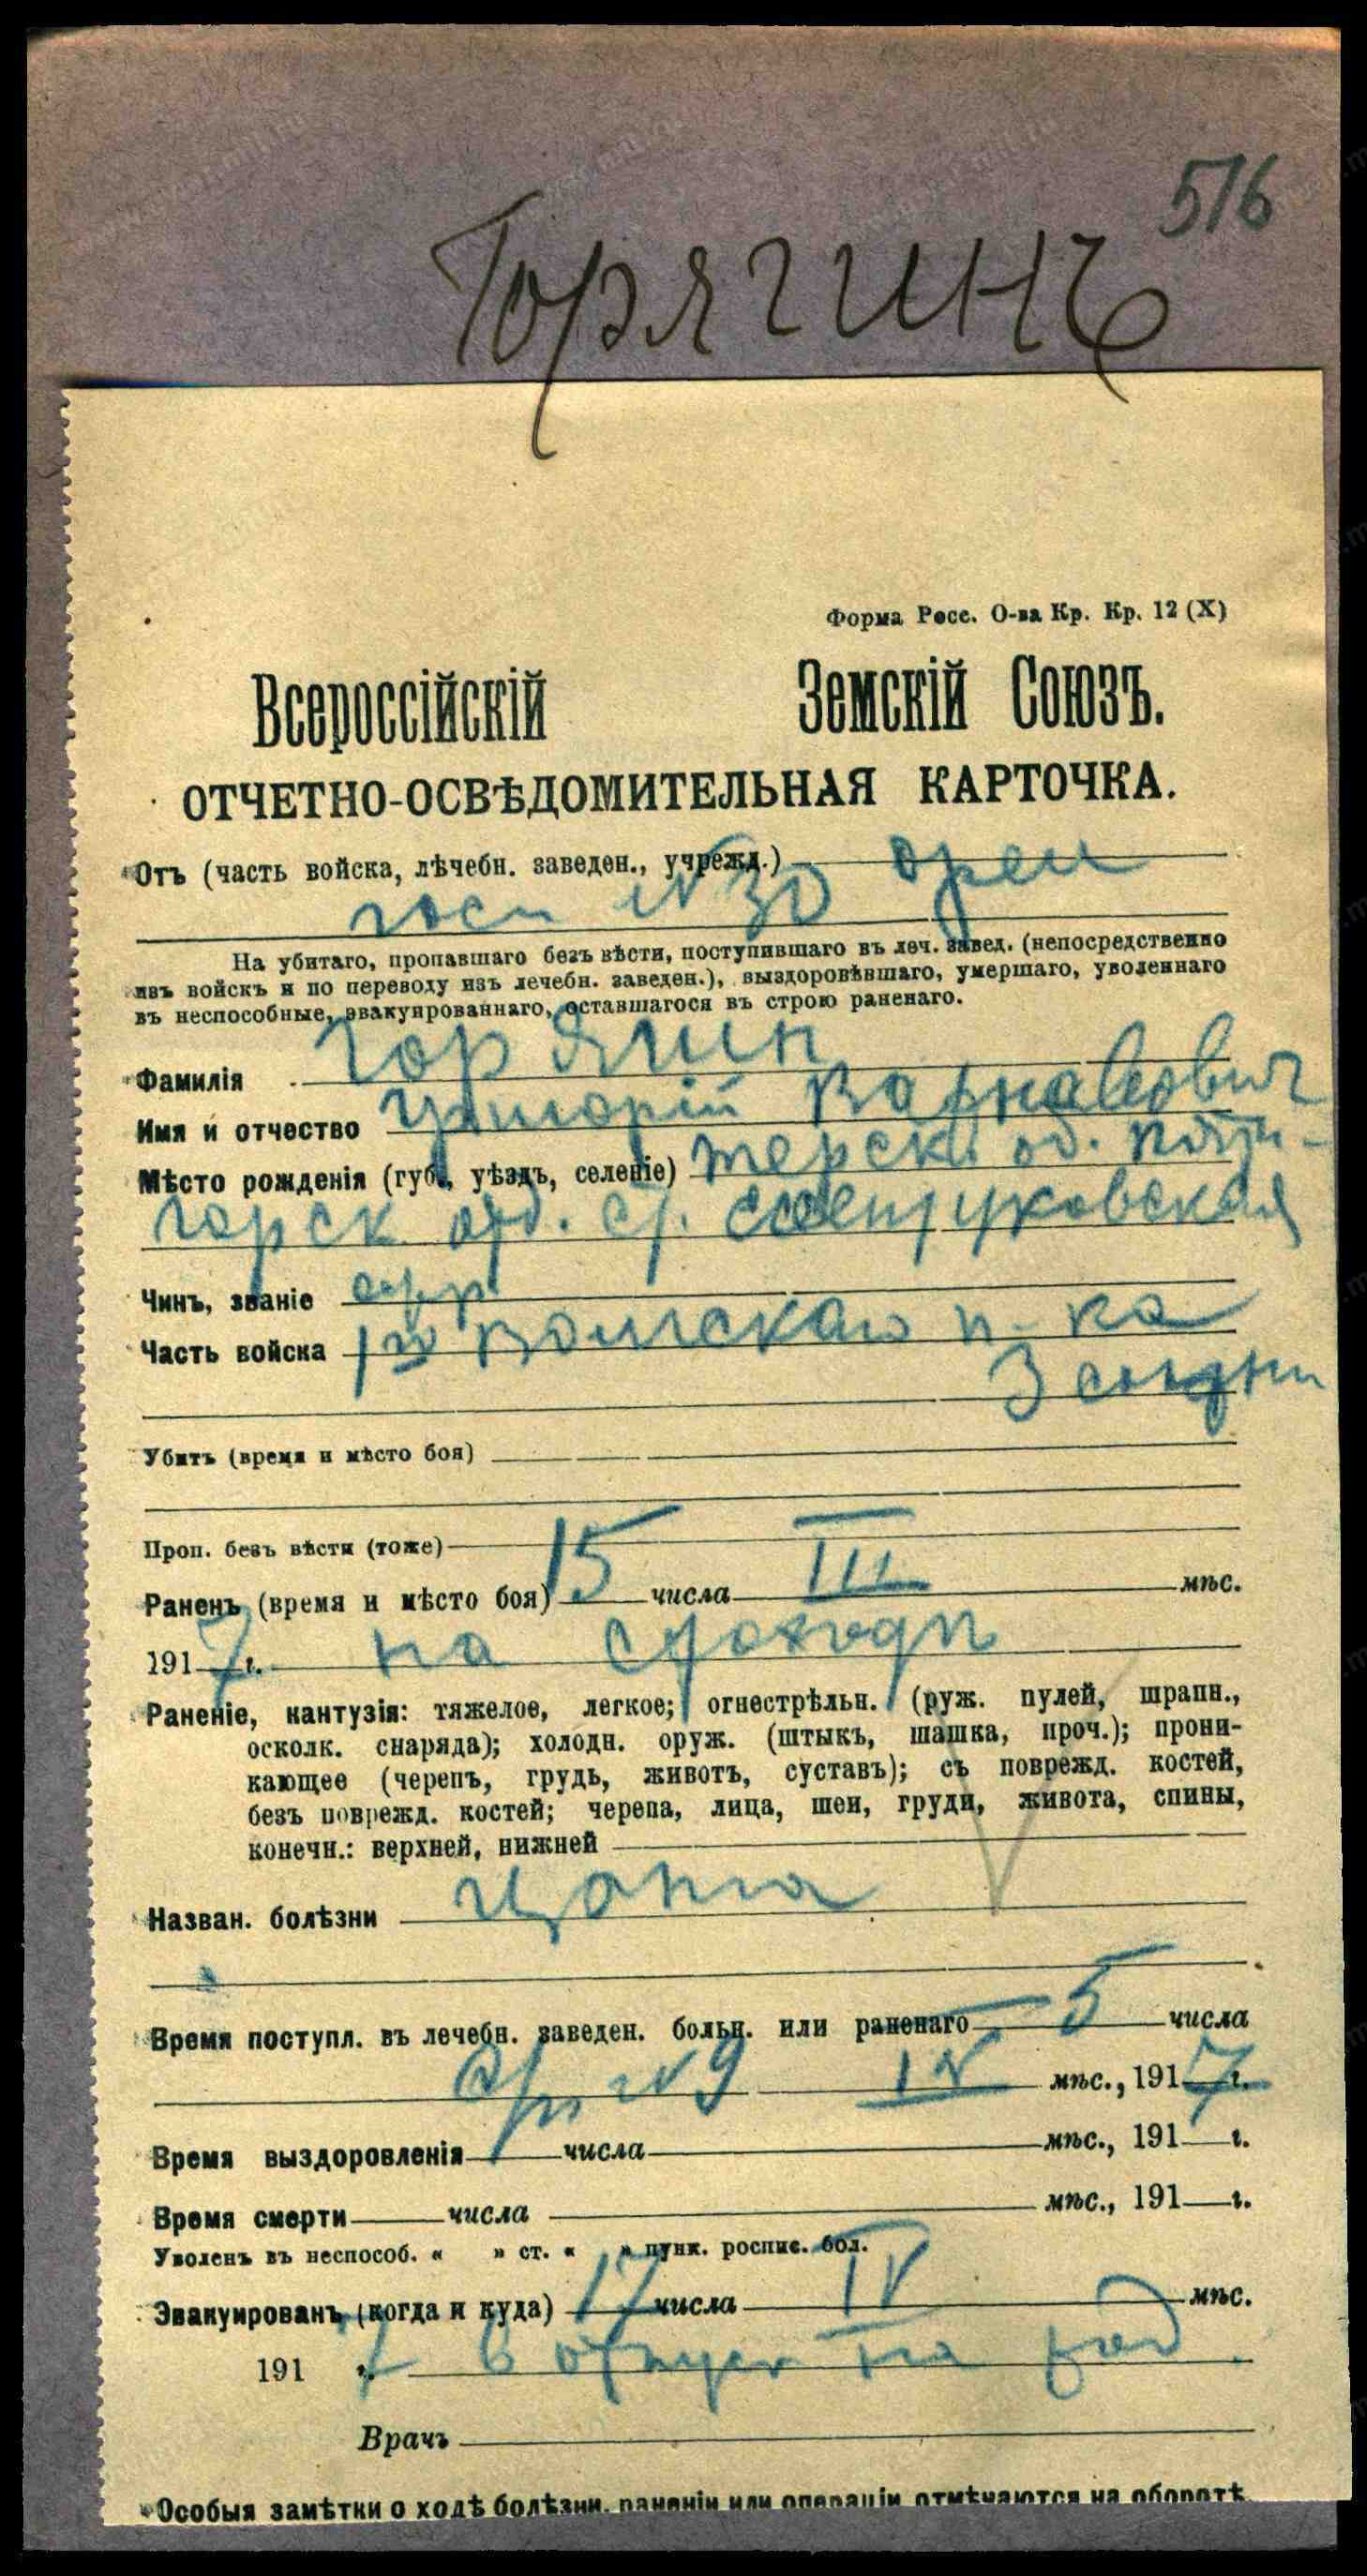 516
Горягинъ
Форма Росс. О-ва Кр. Кр. 12 (X)
Всероссійскій Земскій Союзъ.
ОТЧЕТНО-ОСВѢДОМИТЕЛЬНАЯ КАРТОЧКА.
Отъ (часть войска, лѣчебн. заведен., учрежд.)
госп №30
На убитаго, пропавшаго безъ вѣсти, поступившаго въ леч. завед. (непосредственно
изъ войскъ и по переводу изъ лечебн. заведен.), выздоровѣвшаго, умершаго, уволеннаго
въ неспособные, эвакуированнаго, оставшагося въ строю раненаго.
Фамилія
Имя и отчество Григорій
Мѣсто рожденія (губ., уѣздъ, селеніе) терск. об. пяти-
горск. отд. ст.
Чинъ, званіе
Часть войска 1го Волгскаго п-ка
3 сотни
Убитъ (время и мѣсто боя)
Проп. безъ вѣсти (тоже)
Раненъ (время и мѣсто боя) 15 числа III мѣс.
1917 г. на
Раненіе, кантузія: тяжелое, легкое; огнестрѣльн. (руж. пулей, шрапн.,
осколк. снаряда); холодн. оруж. (штыкъ, шашка, проч.); прони-
кающее (черепъ, грудь, животъ, суставъ); съ поврежд. костей,
безъ поврежд. костей; черепа, лица, шеи, груди, живота, спины,
конечн.: верхней, нижней
Назван. болѣзни цинга
Время поступл. въ лечебн. заведен. больн. или раненаго 5 числа
№9 IV мѣс., 1917 г.
Время выздоровленія числа мѣс., 191 г.
Время смерти числа мѣс., 191 г.
Уволенъ въ неспособ. « » ст. « » пунк. роспис. бол.
Эвакуированъ (когда и куда) 17 числа IV мѣс.
1917 в отпуск на
Врачъ
Особыя замѣтки о ходѣ болѣзни, раненіи или операціи отмѣчаются на оборотѣ.